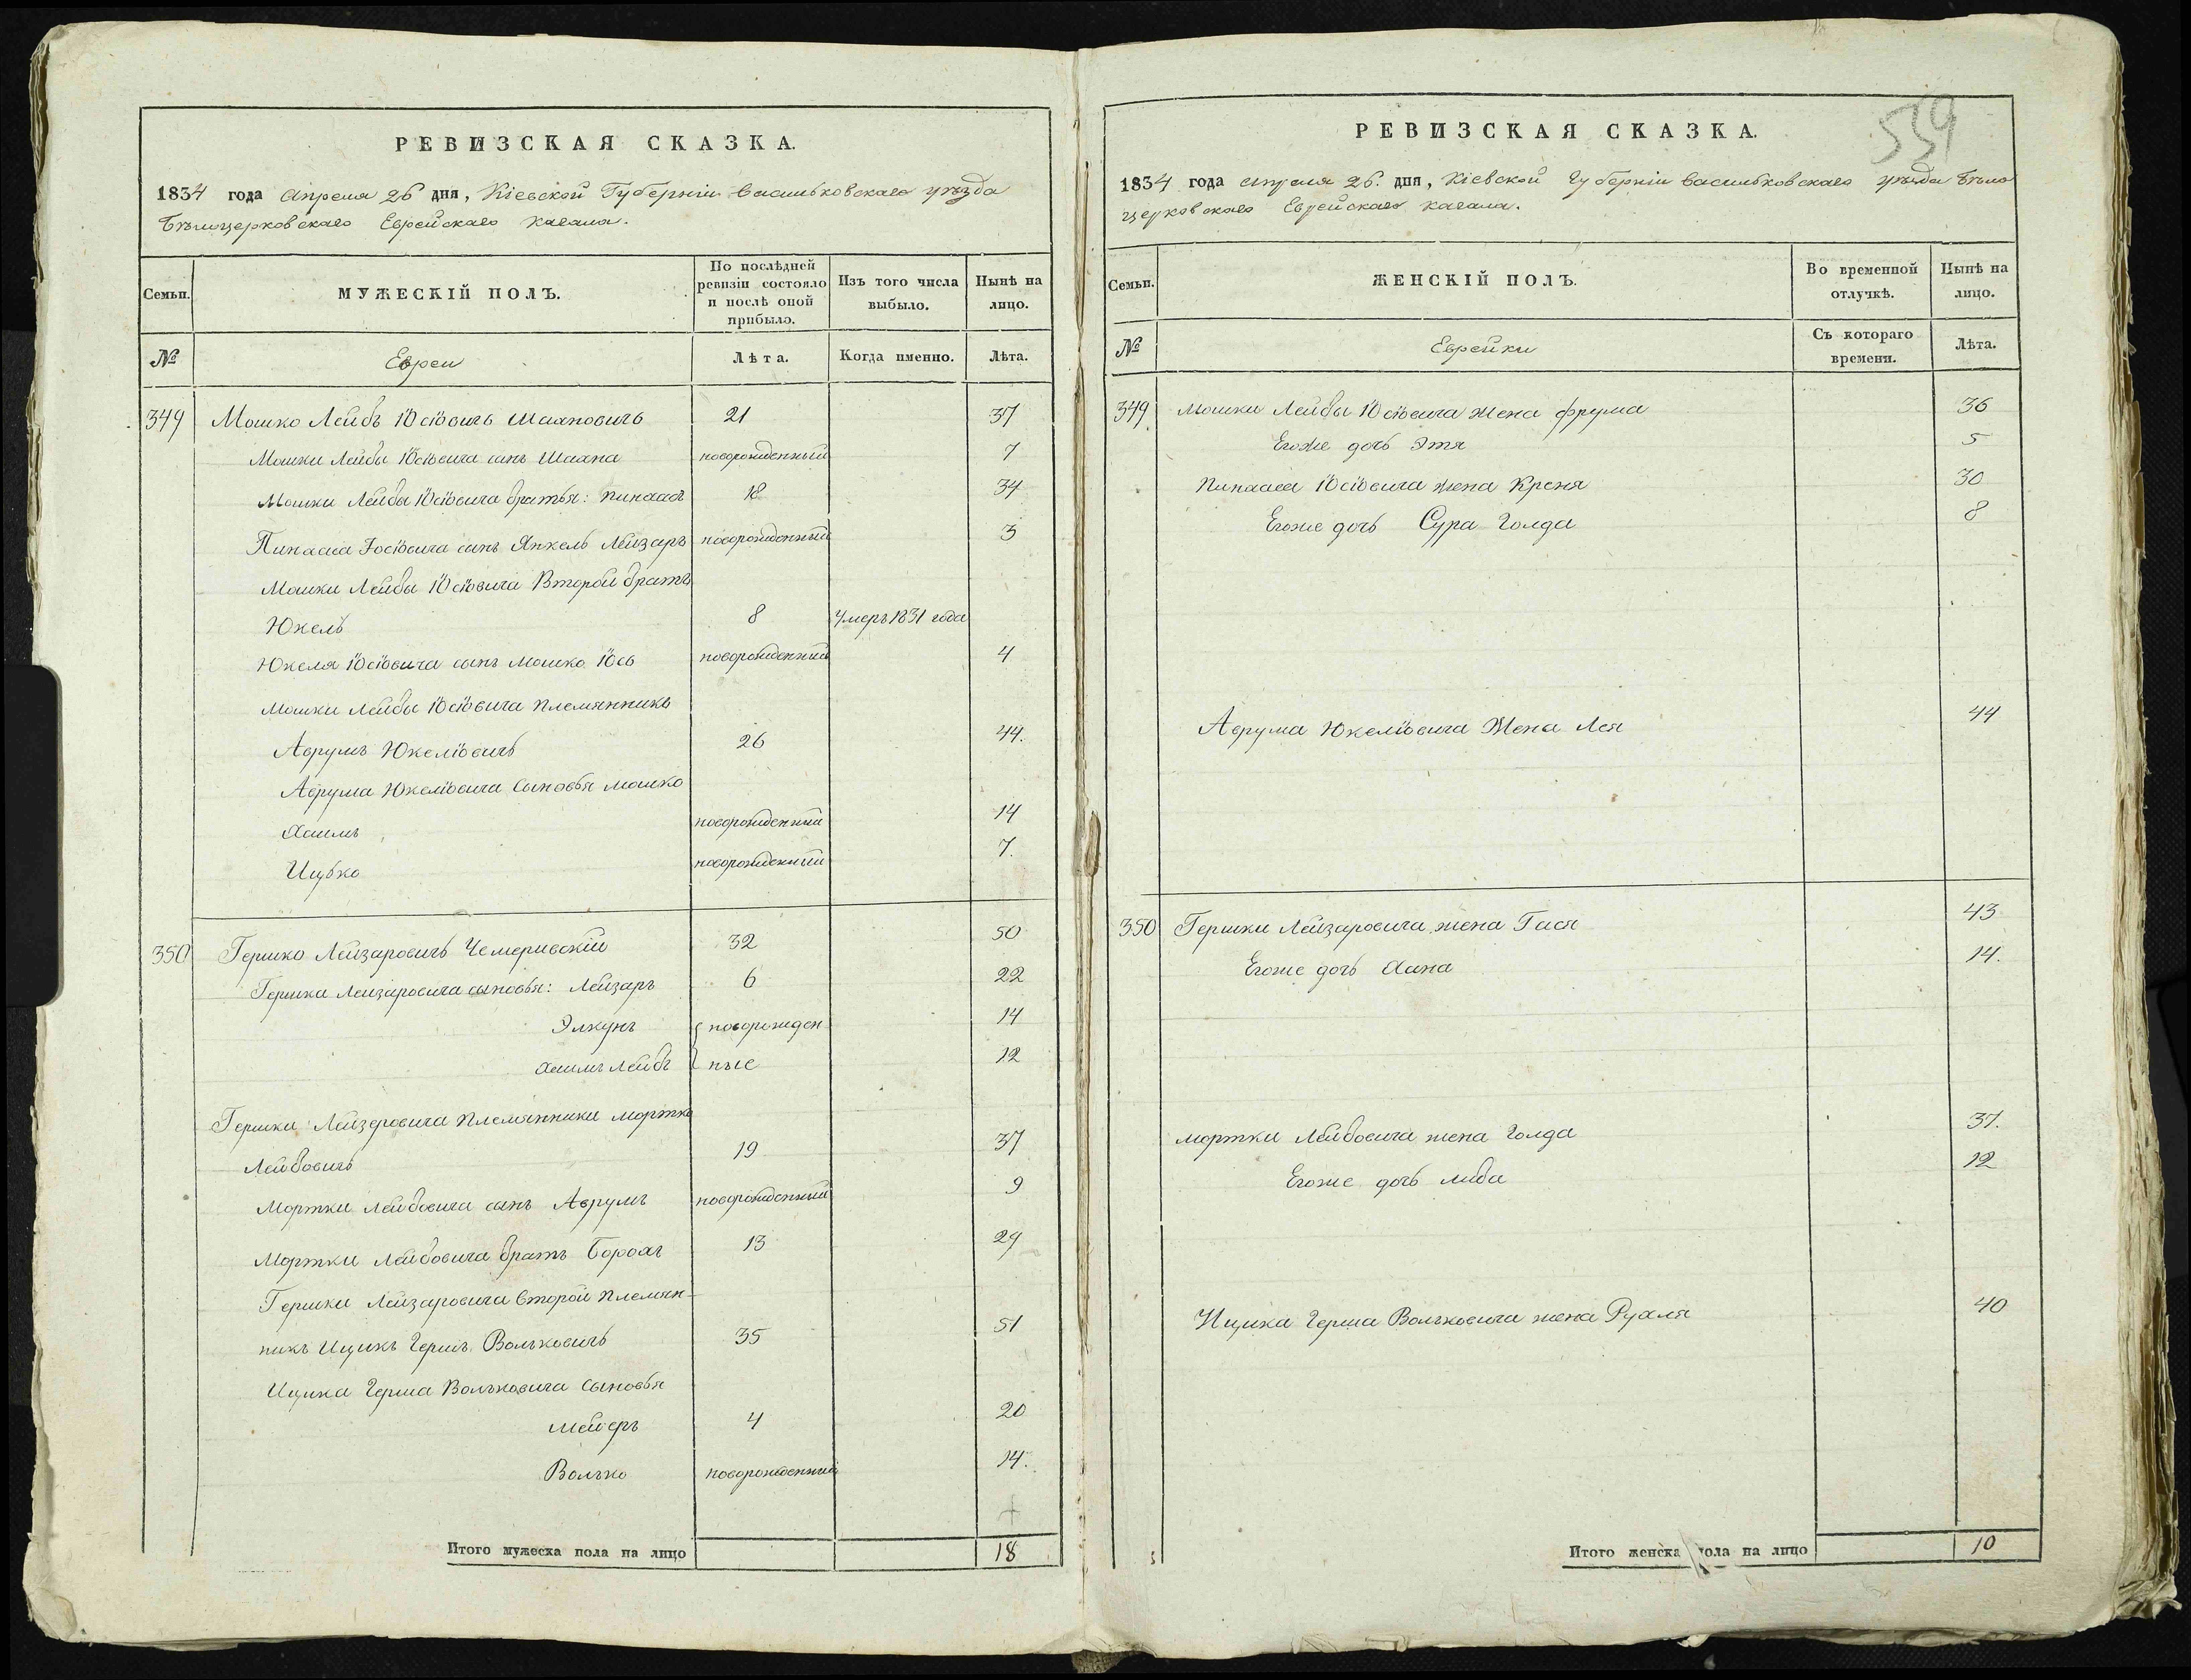 РЕВИЗСКАЯ СКАЗКА.
1834 года Апреля 26 дня, Кіевской Губерніи Васильковскаго уѣзда
Бѣлоцерковскаго Еврейскаго кагала.
Семьи.
МУЖЕСКІЙ ПОЛЪ.
По послѣдней ревизіи состояло и послѣ оной прибыло.
Изъ того числа выбыло.
Нынѣ на лицо.
№
Евреи
Лѣта.
Когда именно.
Лѣта.
349 Мошко Лейбъ Іосіовичъ Шаяповичъ 21 37
Мошки Лейбы Іосіовича сынъ Шахна новорожденный 7
Мошки Лейбы Іосіовича братья: Пинхасъ 18 34
Пинхаса Іосіовича сынъ Янкель Лейзаръ новорожденный 3
Мошки Лейбы Іосіовича Второй братъ
Юкель 8 Умеръ 1831 года
Юкеля Іосіовича сынъ Мошко Іось новорожденный 4
Мошки Лейбы Іосіовича Племянникъ
Аврумъ Юкеліовичъ 26 44.
Аврума Юкеліовича Сыновья Мошко
Хаимъ новорожденный 14
Ицько новорожденный 7.
350 Гершко Лейзаровичъ Чемеривскій 32 50
Гершка Лейзаровича сыновья: Лейзаръ 6 22
Элкунъ новорожден 14
Хаимъ Лейбъ ные 12
Гершки Лейзеровича Племянники Мортко
Лейбовичъ 19 37
Мортки Лейбовича сынъ Аврумъ новорожденный 9
Мортки Лейбовича братъ Борохъ 13 29
Гершки Лейзаровича Второй Племян-
никъ Ицикъ Гершъ Вольковичъ 35 51
Ицика Герша Вольковича Сыновья
Мейеръ 4 20
Волько новорожденный 14.
Итого мужеска пола на лицо 18
539
РЕВИЗСКАЯ СКАЗКА.
1834 года Апреля 26. дня, Кіевской Губерніи Васильковскаго уѣзда Бѣло
церковскаго Еврейскаго кагала.
Семьи.
ЖЕНСКІЙ ПОЛЪ.
Во временной отлучкѣ.
Нынѣ на лицо.
№
Еврейки
Съ котораго времени.
Лѣта.
349 Мошки Лейбы Іосіовича Жена Фрума 36
Егоже дочь Этя 5
Пинхаса Іосіовича жена Креня 30
Егоже дочь Сура Голда 8
Аврума Юкеліовича Жена Лея 44
350 Гершки Лейзаровича жена Гася 43
Егоже дочь Хана 14.
Мортки Лейбовича жена Голда 37.
Егоже дочь Либа 12
Ицика Герша Вольковича жена Рухля 40
Итого женска пола на лицо 10